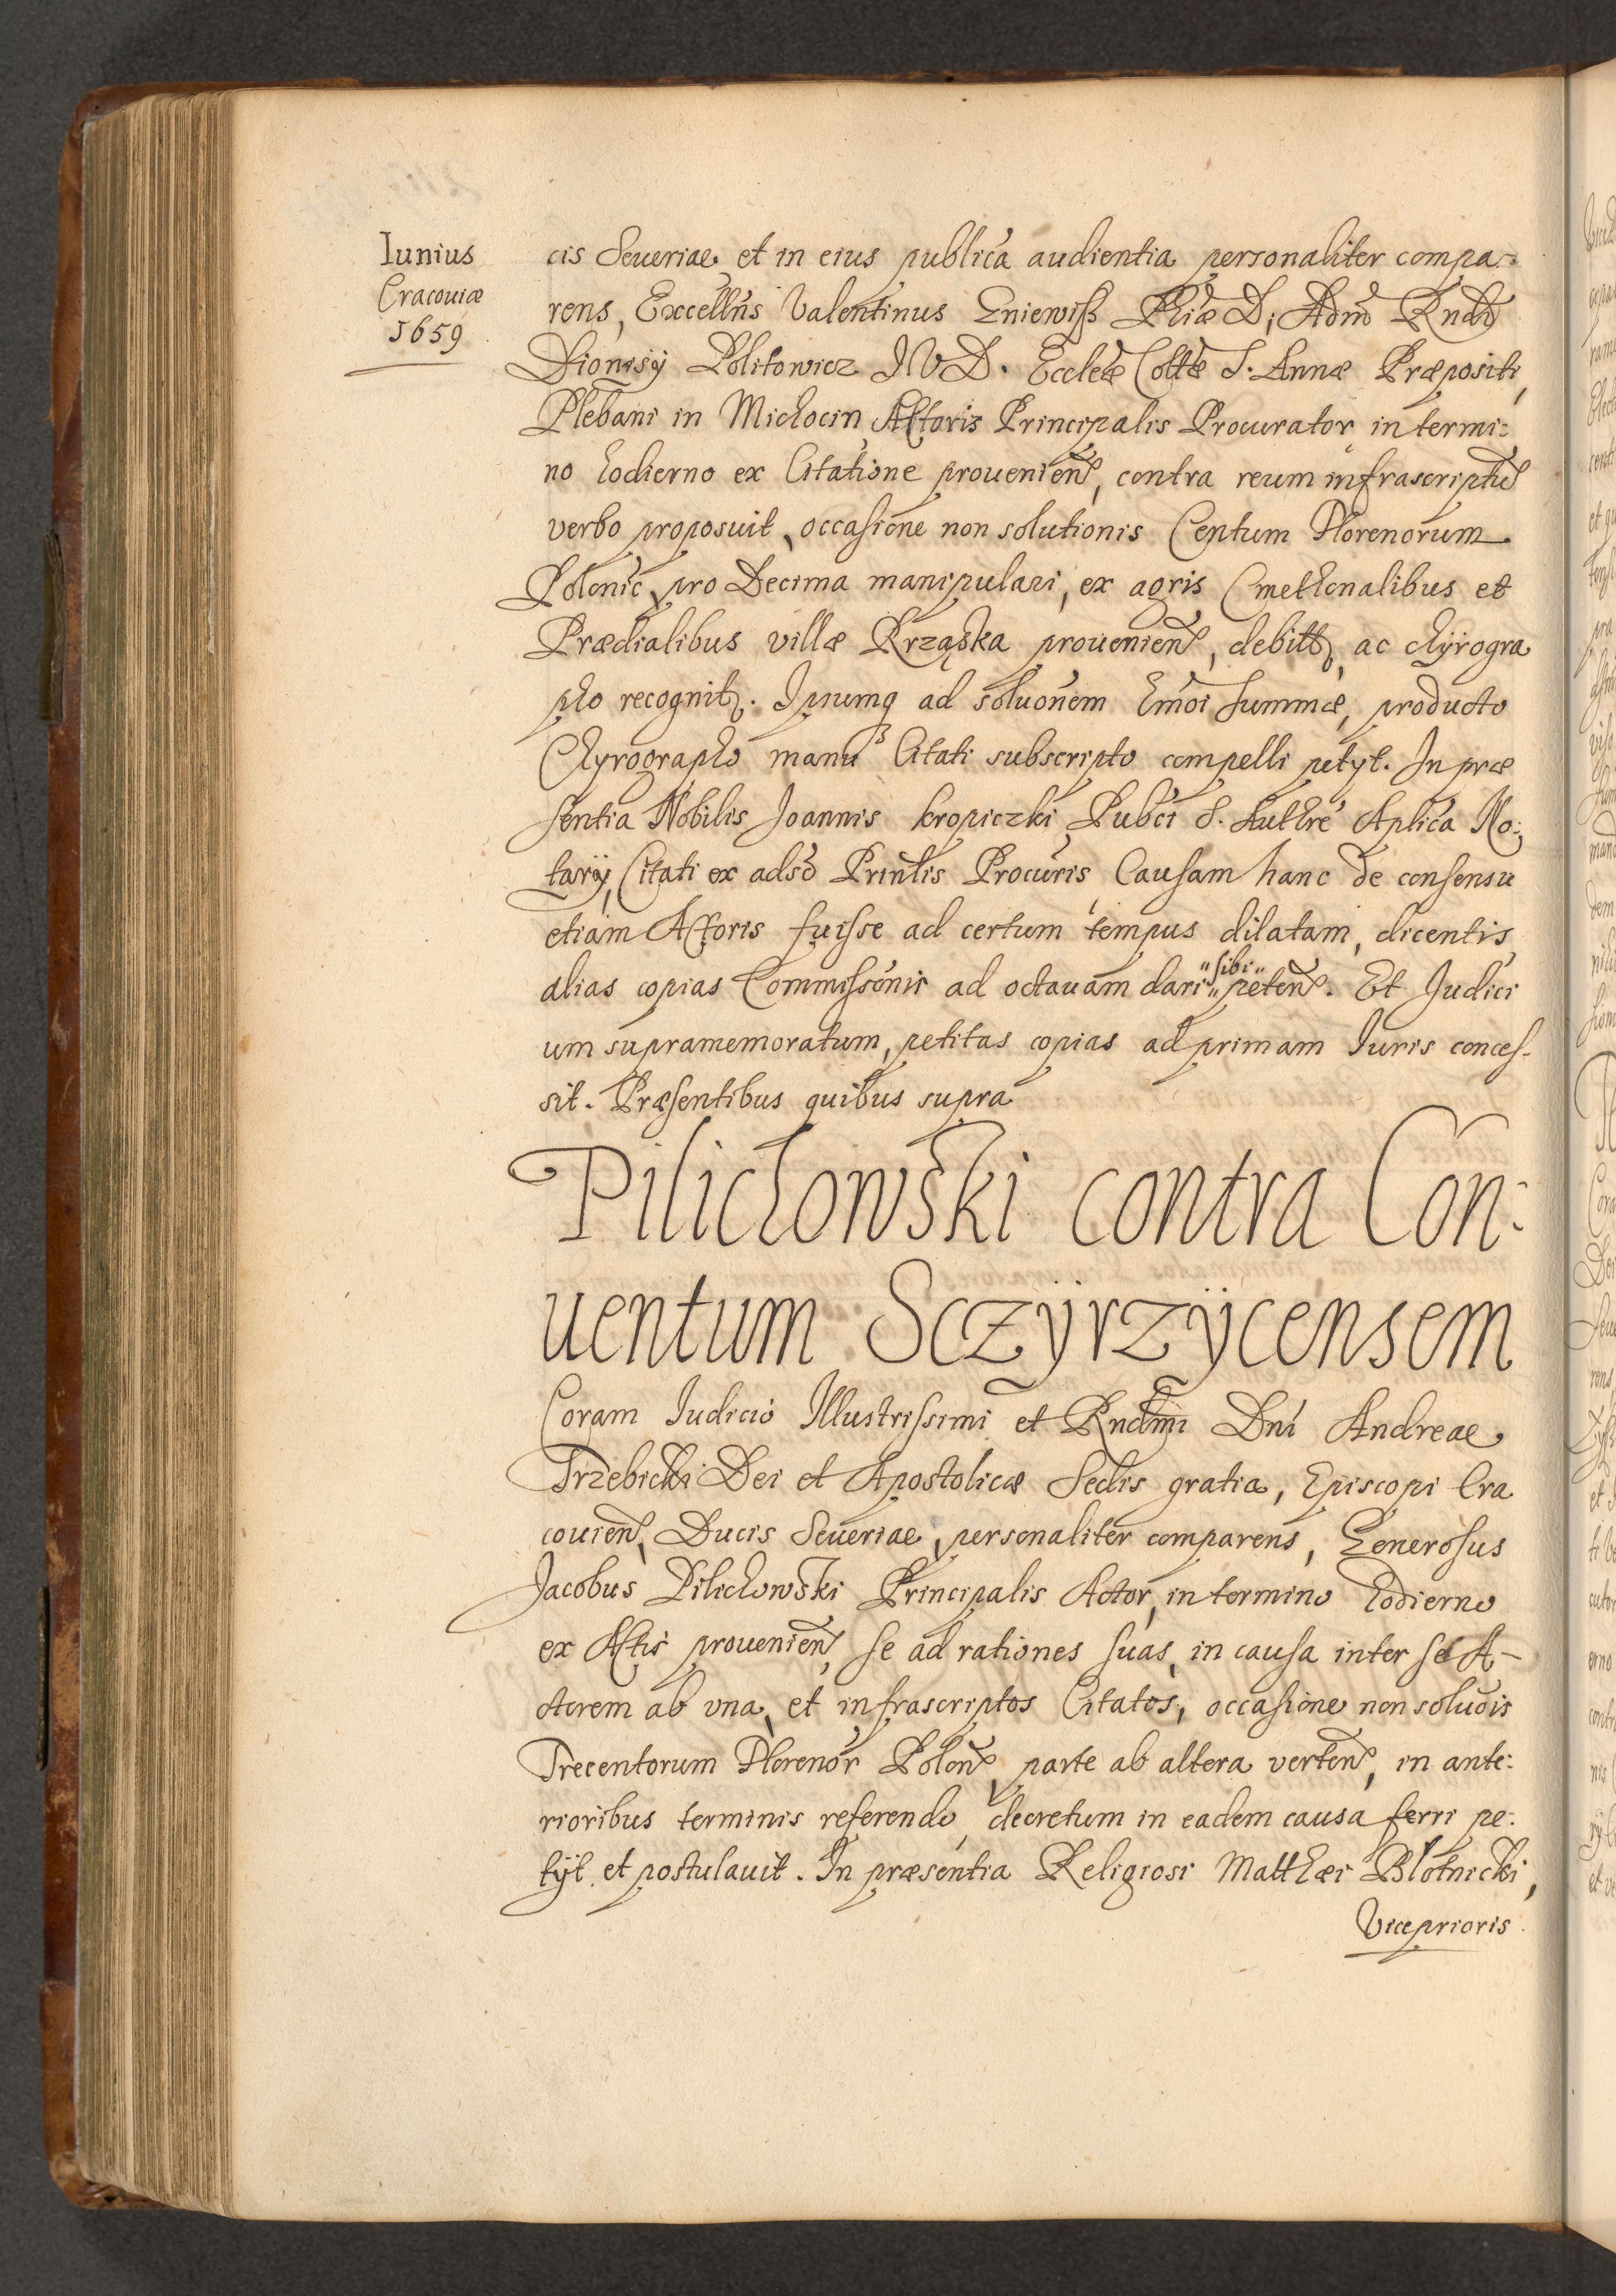 Iunius
Cracouiæ
1659
cis Seueriae, et in eius publica audientia personaliter compa-
rens, Excellñs Valentinus Gniewiss Phiæ D; Admõ Rndi
Dionisÿ Politowicz IVD. Eccletæ Colltæ S. Annæ Præpositi,
Plebani in Michocin Actoris Principalis Procurator, in termi:
no hodierno ex Citatione prouenien̄, contra reum infrascriptũ
verbo proposuit, occasione non solutionis Centum Florenorum
Polonic, pro Decima manipulari, ex agris Cmethonalibus et
Prædialibus villæ Krząska prouenien̄, debitt, ac chÿrogra
pho recognit. Ipsumq ad soluõnem hmõi summæ, producto
Chyrographo manu Citati subscripto compelli petyt. In præ
sentia Nobilis Joannis Kropiczki Pubci S. Authrẽ Aplica No:
tarÿ, Citati ex adsõ Prinlis Procuris, Causam hanc de consensu
etiam Actoris fuisse ad certum tempus dilatam, dicentis
alias copias Commissionis ad octauam dari "sibi" peten̄. Et Judici
um supramemoratum, petitas copias ad primam Iuris conces-
sit. Præsentibus quibus supra
Pilichowski contra Con:
uentum Sczÿrzÿcensem
Coram Iudicio Illustrissimi et Rndmi Dni Andreae
Trzebicki Dei et Apostolicæ Sedis gratia, Episcopi Cra
couien̄, Ducis Seueriae, personaliter comparens, Generosus
Jacobus Pilichowski Principalis Actor, in termino hodierno
ex Actis prouenien̄, se ad rationes suas, in causa inter se A-
ctorem ab vna, et infrascriptos Citatos, occasione non soluõis
Trecentorum Florenor Polon̄, parte ab altera verten̄, in ante:
rioribus terminis referendo, decretum in eadem causa ferri pe:
tÿt et postulauit. In præsentia Religiosi Matthæi Błotnicki,
Viceprioris